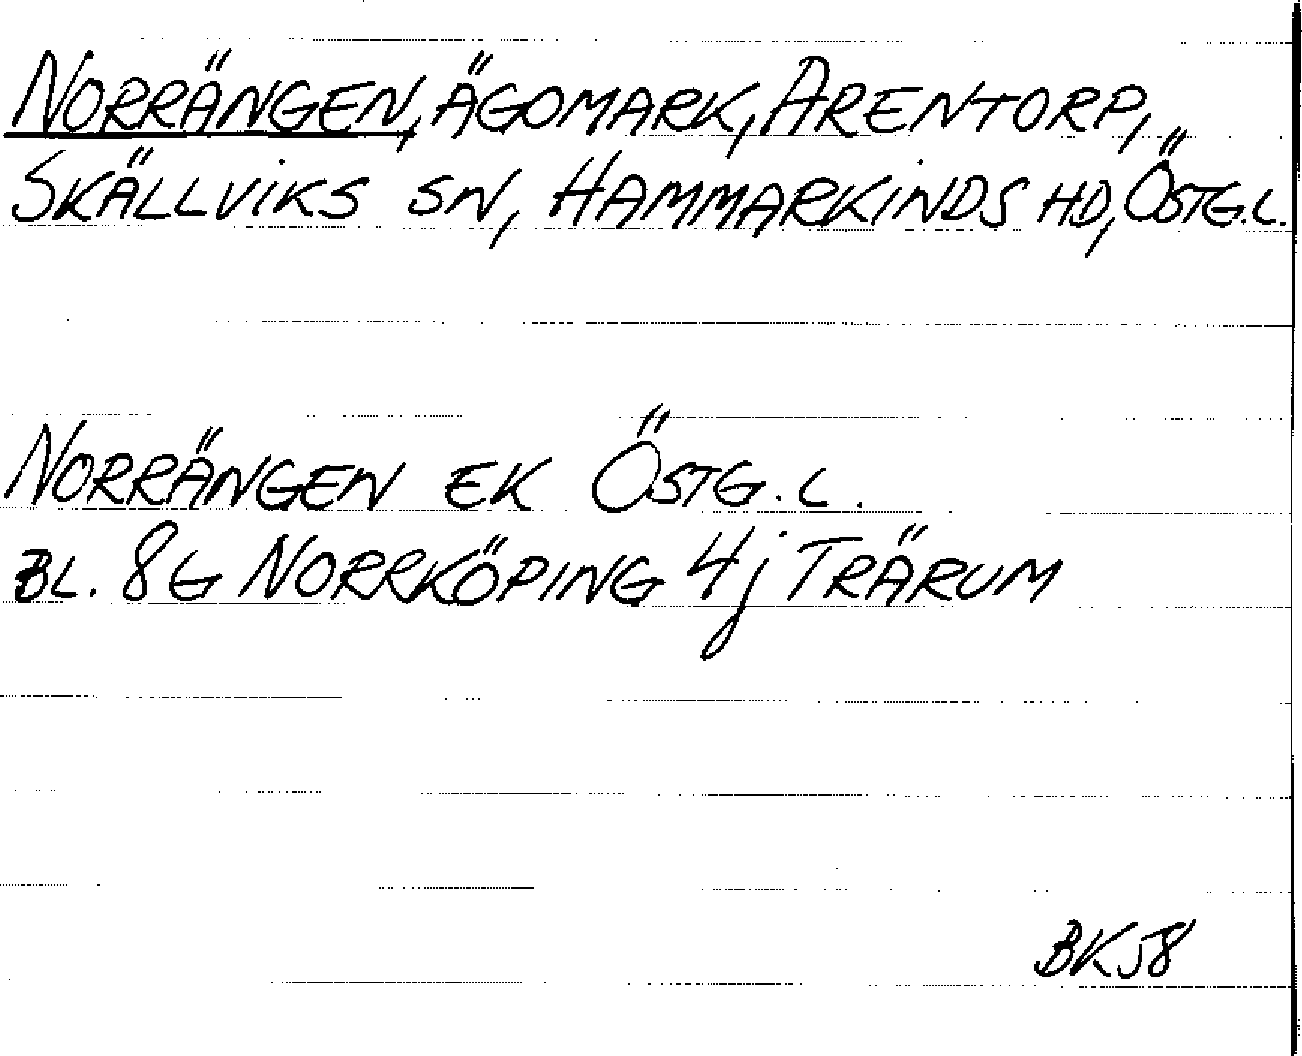 NORRÄNGEN, ÄGOMARK, ARENTORP,
SKÄLLVIKS SN, HAMMARKINDS HD, ÖSTG.L.
NORRÄNGEN EK ÖSTG.L.
BL. 8G NORRKÖPING 4j TRÄRUM
BK58